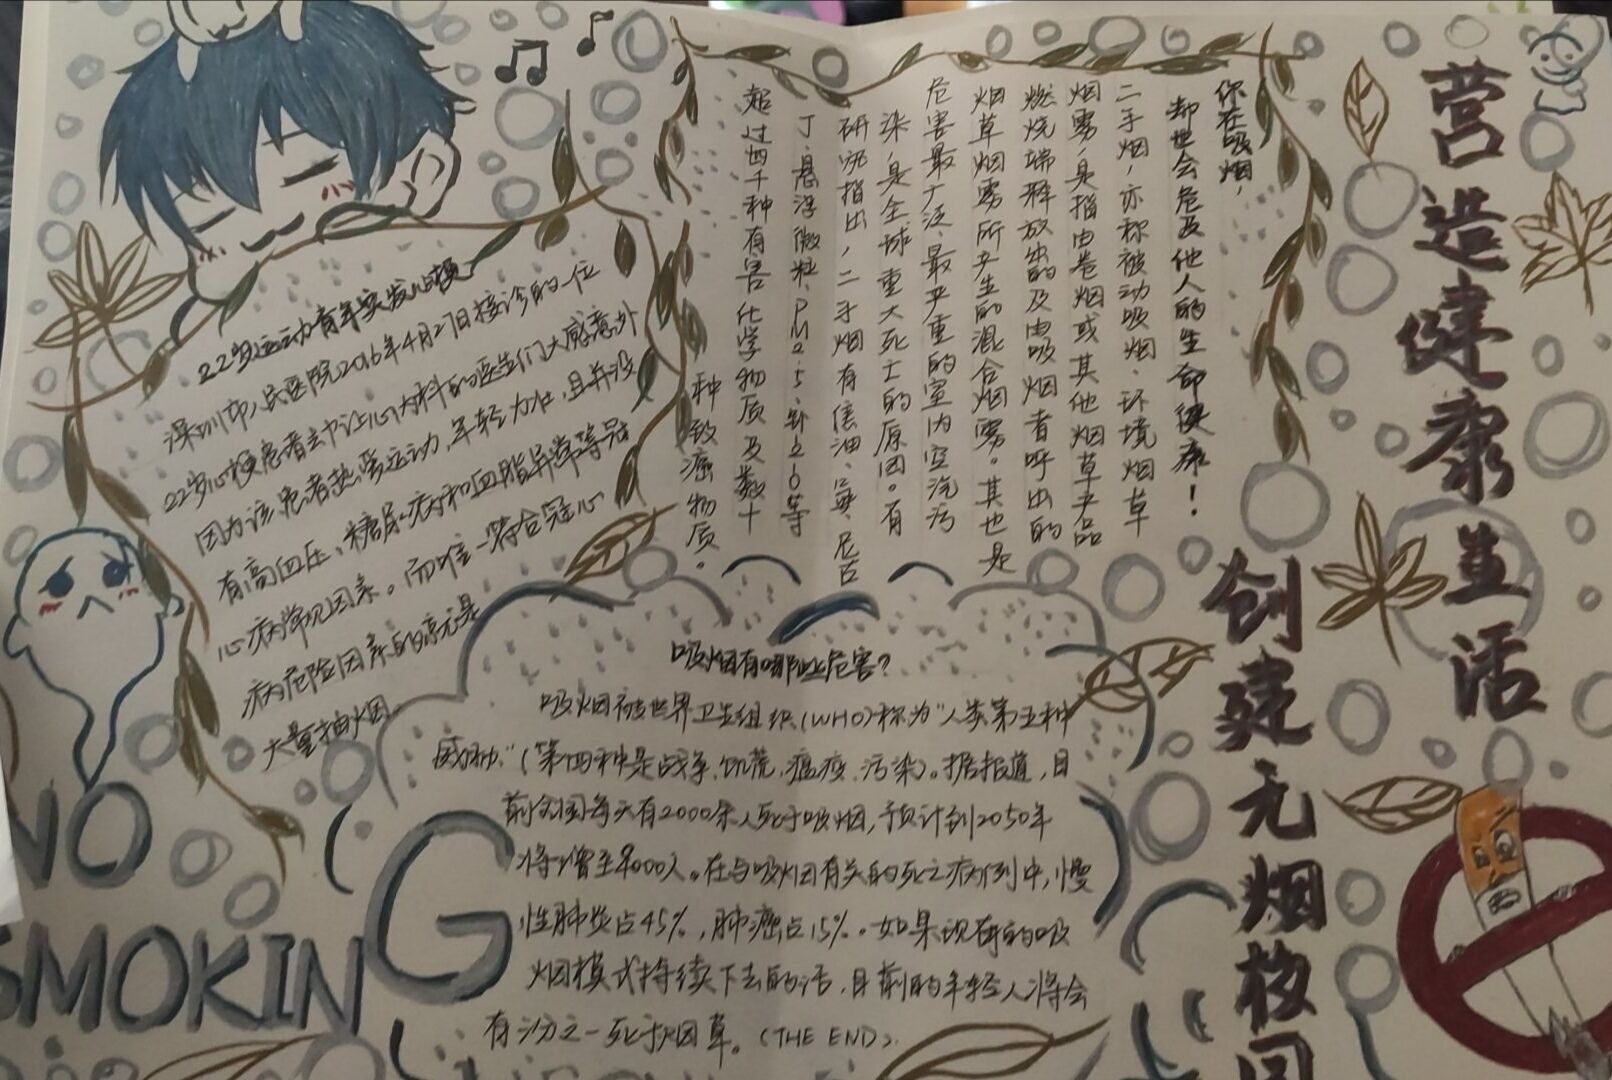 营造健康生活
创建无烟校园
你在吸烟，
却世会危及他人的生命健康！
二手烟，亦称被动吸烟、环境烟草
烟雾，是指由卷烟或其他烟草产品
燃烧端释放出的及由吸烟者呼出的
烟草烟雾所产生的混合烟雾。其也是
危害最广泛、最严重的室内空气污
染，是全球重大死亡的原因。有
研究指出，二手烟有焦油、氨、尼古
丁、悬浮微粒、PM2.5、钋210等
超过四千种有害化学物质及数十
种致癌物质。
22岁运动青年突发心梗
深圳市人民医院2016年4月27日接诊的一位
22岁心梗患者去中让心内科的医生们大感意外
因为该患者热爱运动，年轻力壮，且并没
有高血压、糖尿病和血脂异常等冠
心病常见因素。而唯一符合冠心
病危险因素的竟是
大量抽烟。
吸烟有哪些危害？
吸烟被世界卫生组织(WHO)称为"人类第五种
威胁"(第四种是战争、饥荒、瘟疫、污染)。据报道，目
前全国每天有2000余人死于吸烟，预计到2050年
将增至8000人。在与吸烟有关的死亡病例中，慢
性肺炎占45%，肺癌占15%。如果现有的吸
烟模式持续下去的话，目前的年轻人将会
有3分之一死于烟草。(THE END)
NO
SMOKING